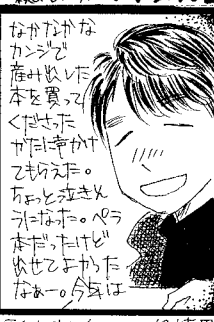 なかなかな
カンジで
産み出した
本を買って
くださった
かたに声かけ
てもらえた。
ちょっと泣きそ
うになった。ペラ
本だったけど
出せてよかった
なあー。今年は